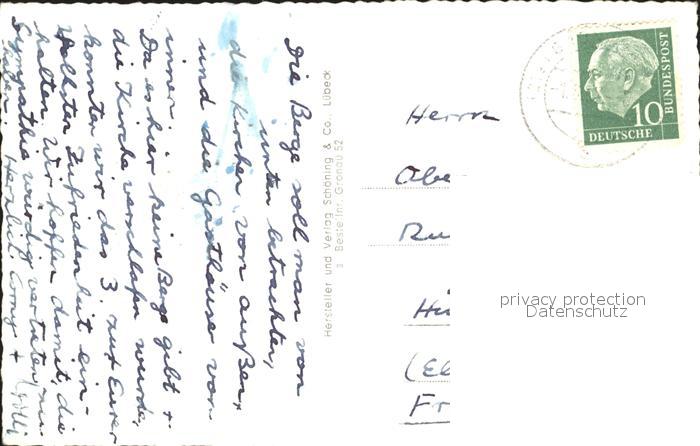 Die Berge soll man von
unten betrachten,
die Kirchen von außen,
und die Gasthäuser von
innen!
Da es hier keine Berge gibt +
die Kirche verschlafen wurde,
konnten wir das 3. auf Eurer
vollsten Zufriedenheit ein-
halten. Wir hoffen damit, die
Sympathie würdig vertreten zu
haben. Herzlich
Hersteller und Verlag Schöning & Co., Lübeck
Bestellnr. Gronau 52
Herrn
Obe
Ru
Hi
(El
Fr
10
DEUTSCHE
BUNDESPOST
privacy protection
Datenschutz